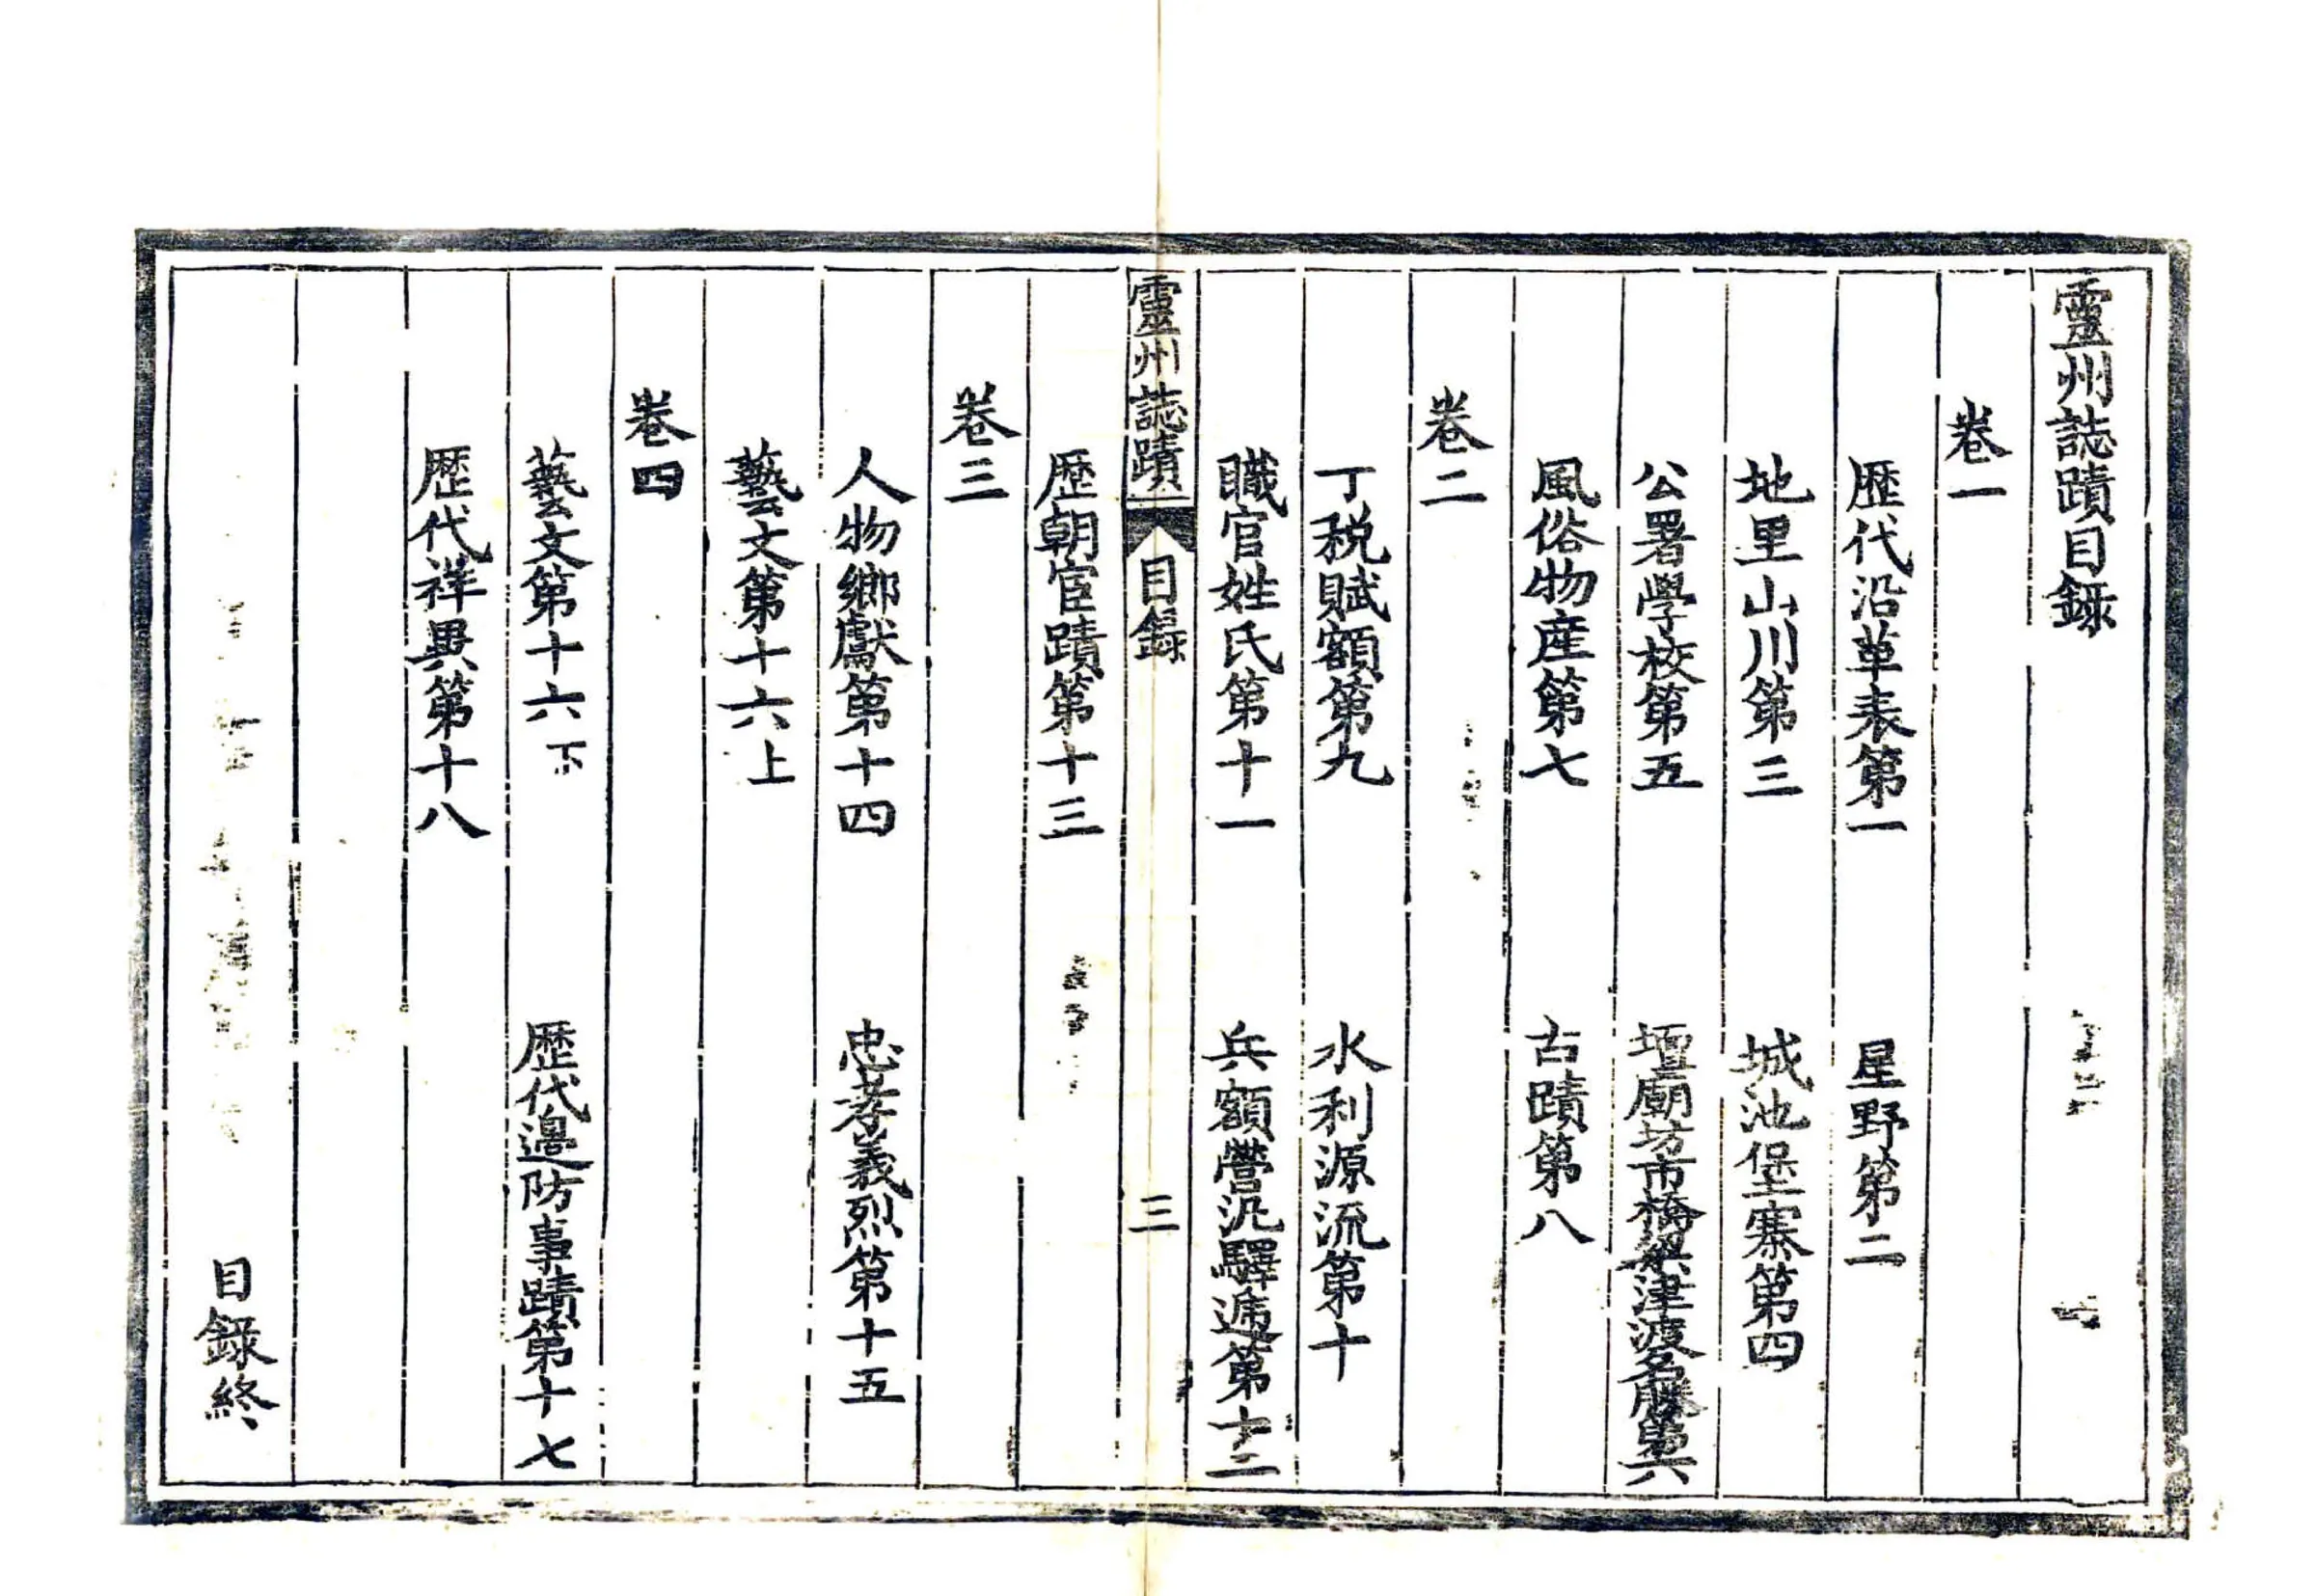 靈州誌蹟目錄
卷一
歷代沿革表第一　星野第二
地里山川第三　城池堡寨第四
公署學校第五　壇廟坊市橋梁津渡名勝第六
風俗物產第七　古蹟第八
卷二
丁稅賦額第九　水利源流第十
職官姓氏第十一　兵額營汛驛遞第十二
靈州誌蹟　目錄　三
歷朝宦蹟第十三
卷三
人物鄉獻第十四　忠孝義烈第十五
藝文第十六上
卷四
藝文第十六下　歷代邊防事蹟第十七
歷代祥異第十八
目錄終